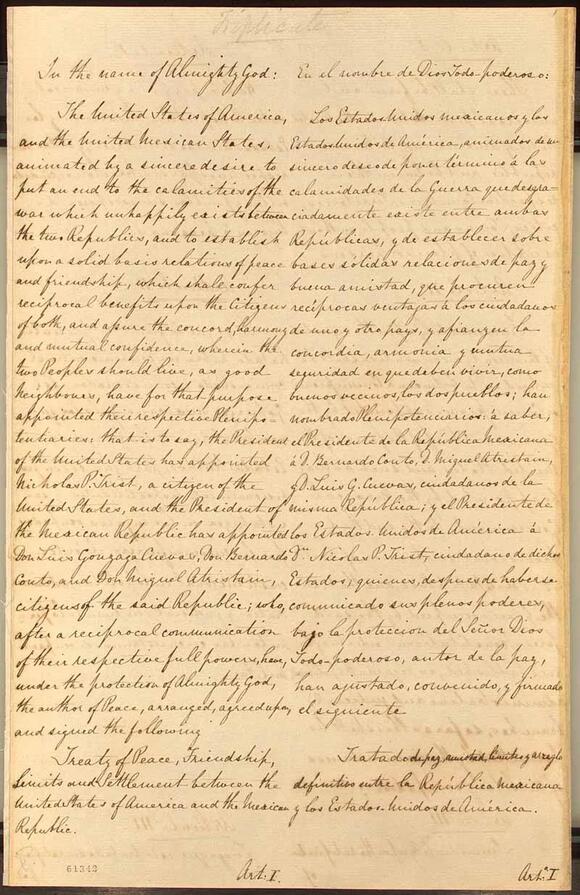 Triplicate
In the name of Almighty God:
The United States of America,
and the United Mexican States,
animated by a sincere desire to
put an end to the calamities of the
war which unhappily exists between
the two Republics, and to establish
upon a solid basis relations of peace
and friendship, which shall confer
reciprocal benefits upon the Citizens
of both, and assure the concord, harmony
and mutual confidence, wherein the
two Peoples should live, as good
Neighbours, have for that purpose
appointed their respective Plenipo
tentiaries: that is to say, the President
of the United States has appointed
Nicholas P. Trist, a citizen of the
United States, and the President of
the Mexican Republic has appointed
Don Luis Gonzaga Cuevas, Don Bernardo
Couto, and Don Miguel Atristain,
citizens of the said Republic; who,
after a reciprocal communication
of their respective full powers, have,
under the protection of Almighty God,
the author of Peace, arranged, agreed upon,
and signed the following
Treaty of Peace, Friendship,
Limits and Settlement between the
United States of America and the Mexican
Republic.
61342
Art: I.
En el nombre de Dios Todo-poderoso:
Los Estados Unidos mexicanos y los
Estados Unidos de América, animados de un
sincero deseo de poner término á las
calamidades de la Guerra que desgra-
ciadamente existe entre ambas
Repúblicas, y de establecer sobre
bases sólidas relaciones de paz y
buena amistad, que procuren
recíprocas ventajas á los ciudadanos
de uno y otro pays, y afianzen la
concordia, armonia y mutua
seguridad en que deben vivir, como
buenos vecinos, los dos pueblos; han
nombrado Plenipotenciarios: á saber,
el Presidente de la República Mexicana
á D. Bernardo Couto, D. Miguel Atristain,
y D. Luis G. Cuevas, ciudadanos de la
misma República; y el Presidente de
los Estados Unidos de América á
Dn. Nicolas P. Trist, ciudadano de dichos
Estados; quienes, despues de haberse
comunicado sus plenos poderes,
bajo la proteccion del Señor Dios
Todo-poderoso, autor de la paz,
han ajustado, convenido, y firmado
el siguiente
Tratado de paz, amistad, límites y arreglo
definitivo entre la República Mexicana
y los Estados-Unidos de América.
Art.º I